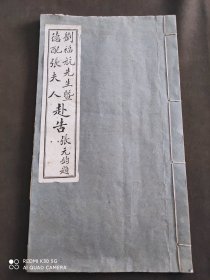 劉福航先生暨
德配張夫人赴告 張元鈞題
REDMI K30 5G
AI QUAD CAMERA